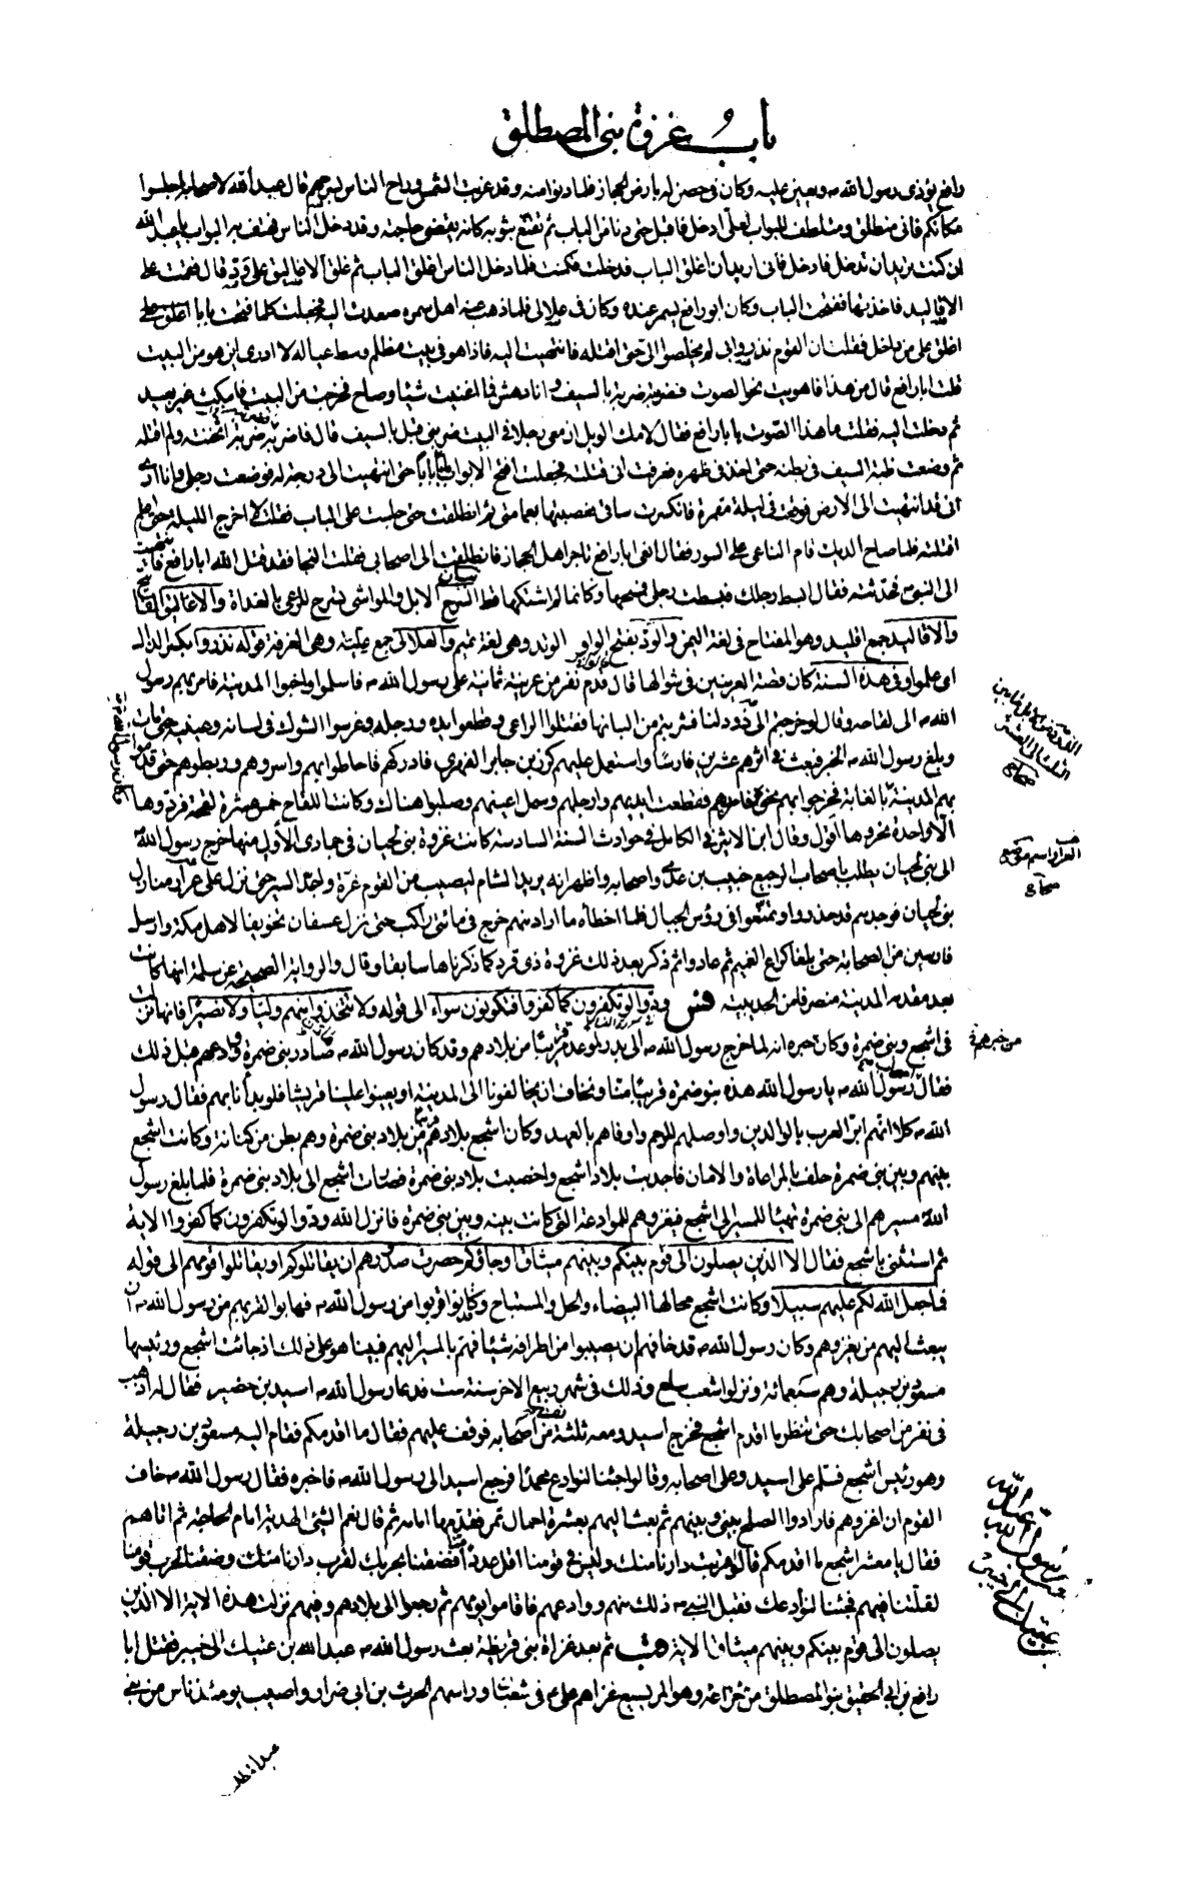 باب غزوة بنى المصطلق
رافع يؤذى رسول الله ص ويعين عليه وكان فى حصن له بارض الحجاز فلما دنوا منه وقد غربت الشمس وراح الناس بسرحهم قال عبد الله لاصحابه اجلسوا
مكانكم فانى منطلق ومتلطف للبواب لعلى ادخل فاقبل حتى دنا من الباب ثم تقنع بثوبه كانه يقضى حاجته وقد دخل الناس فهتف به البواب يا عبد الله
ان كنت تريد ان تدخل فادخل فانى اريد ان اغلق الباب فدخلت فكمنت فلما دخل الناس اغلق الباب ثم علق الاقاليد على ود قال فقمت على
الاقاليد فاخذتها ففتحت الباب وكان ابو رافع يسمر عنده وكان فى علالى فلما ذهب عنه اهل سمره صعدت اليه فجعلت كلما فتحت بابا اغلق على
اغلق على من داخل فقلت ان القوم نذروا بى لم يخلصوا الى حتى اقتله فانتهيت اليه فاذا هو فى بيت مظلم وسط عياله لا ادرى اين هو من البيت
قلت ابا رافع قال من هذا فاهويت نحو الصوت فضربته ضربة بالسيف وانا دهش فما اغنيت شيئا وصاح فخرجت من البيت فامكث غير بعيد
ثم دخلت اليه فقلت ما هذا الصوت يا با رافع فقال لامك الويل ان رجلا فى البيت ضربنى قبل بالسيف قال فاضربه ضربة اثخنته ولم اقتله
ثم وضعت ظبة السيف فى بطنه حتى اخذ فى ظهره فعرفت انى قتلته فجعلت افتح الابواب بابا بابا حتى انتهيت الى درجة له فوضعت رجلى وانا ارى
انى قد انتهيت الى الارض فوقعت فى ليلة مقمرة فانكسرت ساقى فعصبتها بعمامتى ثم انطلقت حتى جلست على الباب فقلت لا اخرج الليلة حتى اعلم
اقتلته فلما صاح الديك قام الناعى على السور فقال انعى ابا رافع تاجر اهل الحجاز فانطلقت الى اصحابى فقلت النجا فقد قتل الله ابا رافع فانتهيت
الى النبى ص فحدثته فقال ابسط رجلك فبسطت رجلى فمسحها وكانما لم اشتكها قط بيان السرح الابل والمواشى تسرح للرعى بالغداة والاغاليق
والاقاليد جمع اقليد وهو المفتاح فى لغة اليمن والود بفتح الواو الوتد وهى لغة تميم والعلالى جمع علية وهى الغرفة قوله نذروا بكسر الذال
اى علموا وفى هذه السنة كان قصة العرنيين فى شوالها قال قدم نفر من عرينة ثمانية على رسول الله ص فاسلموا واجتووا المدينة فامر بهم رسول
الله ص الى لقاحه وقال لو خرجتم الى ذود لنا فشربتم من البانها فقتلوا الراعى وقطعوا يده ورجله وغرسوا الشوك فى لسانه وعينيه حتى مات
وبلغ رسول الله ص الخبر فبعث فى اثرهم عشرين فارسا واستعمل عليهم كرز بن جابر الفهرى فادركهم فاحاطوا بهم واسروهم وربطوهم حتى قدموا
بهم المدينة بالغابة فخرجوا بهم نحوه فامر بهم فقطعت ايديهم وارجلهم وسمل اعينهم وصلبوا هناك وكانت اللقاح خمس عشرة لقحة فردوها
الا واحدة نحروها اقول وقال ابن الاثير فى الكامل فى حوادث السنة السادسة كانت غزوة بنى لحيان فى جمادى الاولى منها خرج رسول الله
الى بنى لحيان يطلب باصحاب الرجيع خبيب بن عدى واصحابه واظهر انه يريد الشام ليصيب من القوم غرة واجد السير حتى نزل على غران منازل
بنى لحيان فوجدهم قد حذروا وتمنعوا فى رؤس الجبال فلما اخطأه ما اراد منهم خرج فى مائتى راكب حتى نزل عسفان تخويفا لاهل مكة وارسل
فارسين من الصحابة حتى بلغا كراع الغميم ثم عادوا ثم ذكر بعد ذلك غزوة ذى قرد كما ذكرناها سابقا وقال والرواية الصحيحة عن سلمة انها كانت
بعد مقدمه المدينة منصرفا من الحديبية فس ودوا لو تكفرون كما كفروا فتكونون سواء الى قوله ولا تتخذوا منهم وليا ولا نصيرا فانها نزلت
فى اشجع وبنى ضمرة وكان خبره انه لما خرج رسول الله ص الى بدر لموعد مر قريبا من بلادهم وقد كان رسول الله ص صادر بنى ضمرة ووادعهم قبل ذلك
فقال اصحاب رسول الله ص يا رسول الله هذه بنو ضمرة قريبا منا ونخاف ان يخالفونا الى المدينة او يعينوا علينا قريشا فلو بدأنا بهم فقال رسول
الله ص كلا انهم ابر العرب بالوالدين واوصلهم للرحم واوفاهم بالعهد وكان اشجع بلادهم قريبا من بلاد بنى ضمرة وهم بطن من كنانة وكانت اشجع
بينهم وبين بنى ضمرة حلف بالمراعاة والامان فاجدبت بلاد اشجع واخصبت بلاد بنى ضمرة فصارت اشجع الى بلاد بنى ضمرة فلما بلغ رسول
الله مسيرهم الى بنى ضمرة تهيأ للمسير الى اشجع فيغزوهم للموادعة التى كانت بينه وبين بنى ضمرة فانزل الله ودوا لو تكفرون كما كفروا الاية
ثم استثنى باشجع فقال الا الذين يصلون الى قوم بينكم وبينهم ميثاق او جاؤكم حصرت صدورهم ان يقاتلوكم او يقاتلوا قومهم الى قوله
فما جعل الله لكم عليهم سبيلا وكانت اشجع محالها البيضاء والحل والمستباح وكانوا قربوا من رسول الله ص فهابوا لقربهم من رسول الله ص ان
يبعث اليهم من يغزوهم وكان رسول الله ص قد خافهم ان يصيبوا من اطرافه شيئا فهم بالمسير اليهم فبينا هو على ذلك اذ جائت اشجع ورئيسها
مسعود بن رجيلة وهم سبعمائة ونزلوا شعب سلع وذلك فى شهر ربيع الاخر سنة ست فدعا رسول الله ص اسيد بن حضير فقال له اذهب
فى نفر من اصحابك حتى تنظر ما اقدم اشجع فخرج اسيد ومعه ثلثة نفر من اصحابه فوقف عليهم فقال ما اقدمكم فقام اليه مسعود بن رجيلة
وهو رئيس اشجع فسلم على اسيد وعلى اصحابه وقالوا جئنا لنوادع محمدا فرجع اسيد الى رسول الله ص فاخبره فقال رسول الله ص خاف
القوم ان اغزوهم فارادوا الصلح بينى وبينهم ثم بعث اليهم بعشرة احمال تمر فقدمها امامه ثم قال نعم الشئ الهدية امام الحاجة ثم اتاهم
فقال يا معشر اشجع ما اقدمكم قالوا قربت دارنا منك وليس فى قومنا اقل عددا منا فضقنا بحربك لقرب دارنا منك وضقنا لحرب قومنا
لقلتنا فيهم فجئنا لنوادعك فقبل النبى ص ذلك منهم ووادعهم فاقاموا يومهم ثم رجعوا الى بلادهم وفيهم نزلت هذه الاية الا الذين
يصلون الى قوم بينكم وبينهم ميثاق الاية قب ثم بعد غزاة بنى قريظة بعث رسول الله ص عبد الله بن عتيك الى خيبر فقتل ابا
رافع بن ابى الحقيق بنو المصطلق من خزاعة وهو المريسيع غزاهم على ع فى شعبان وراسهم الحرث بن ابى ضرار واصيب يومئذ ناس من بنى
عبد المطلب